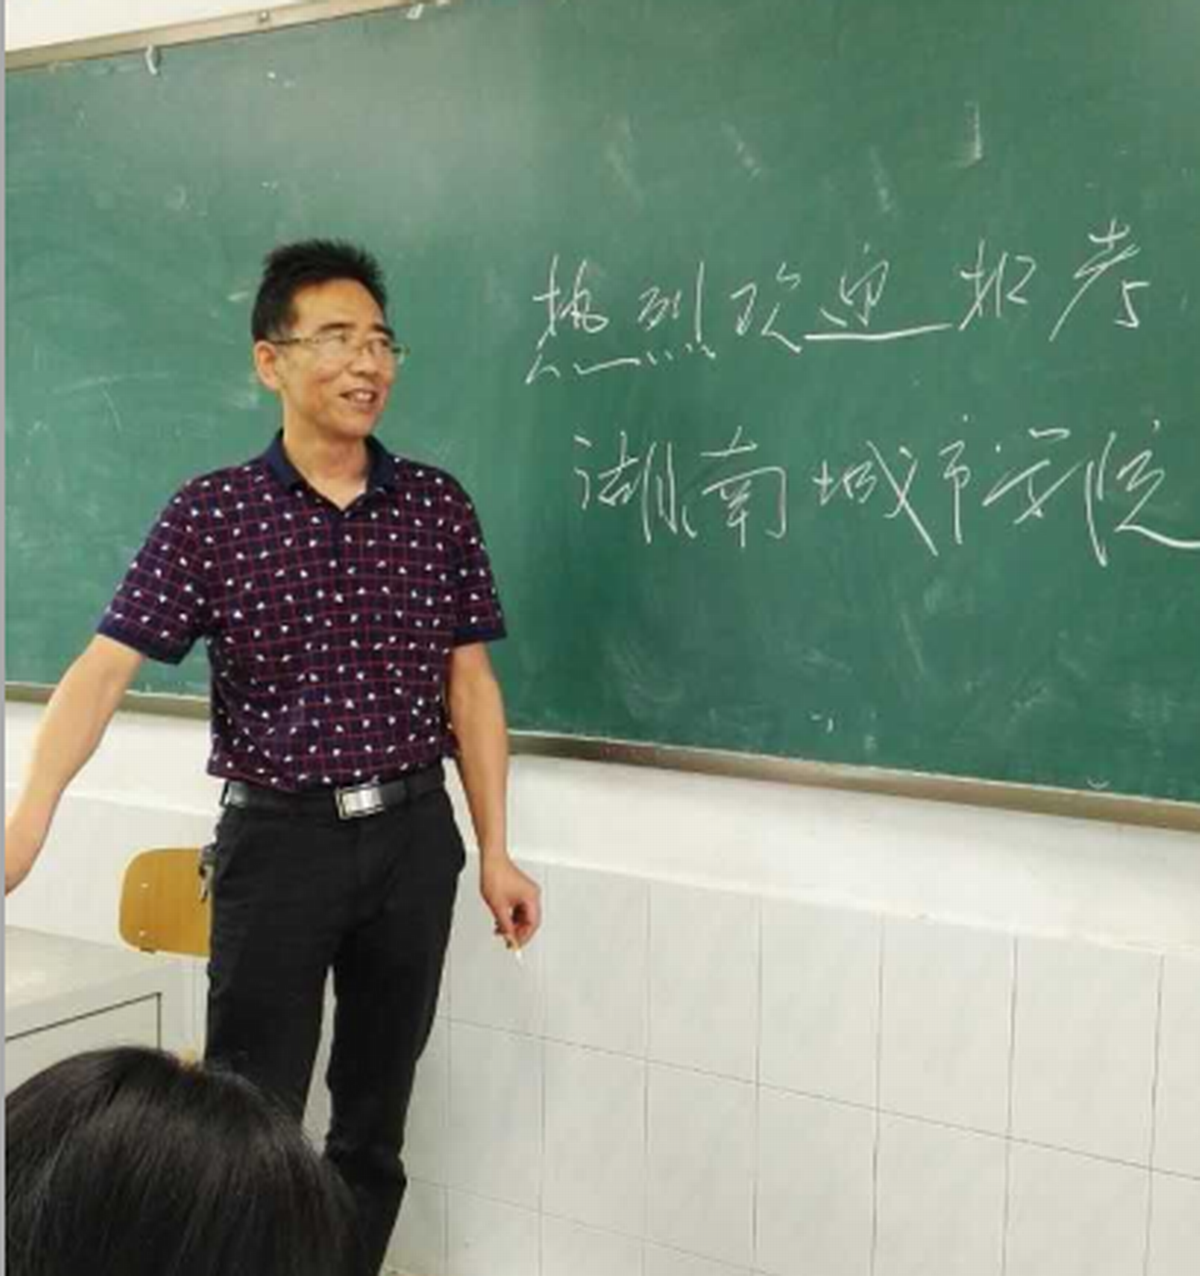 热烈欢迎报考
湖南城市学院